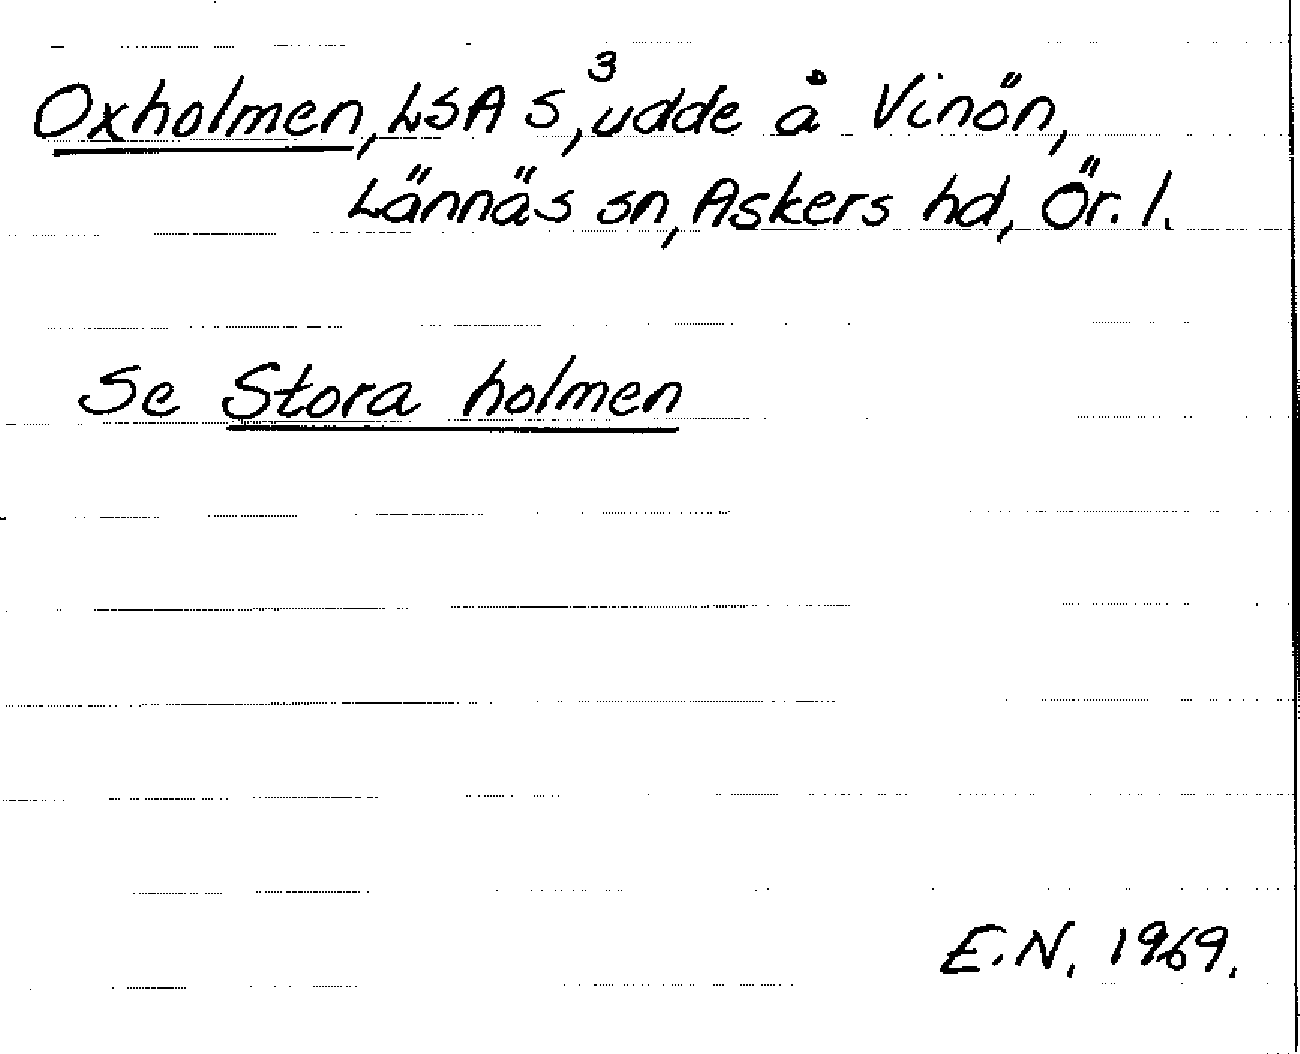 Oxholmen, LSA S,³ udde å Vinön,
Lännäs sn, Askers hd, Ör. l.
Se Stora holmen
E.N. 1969.